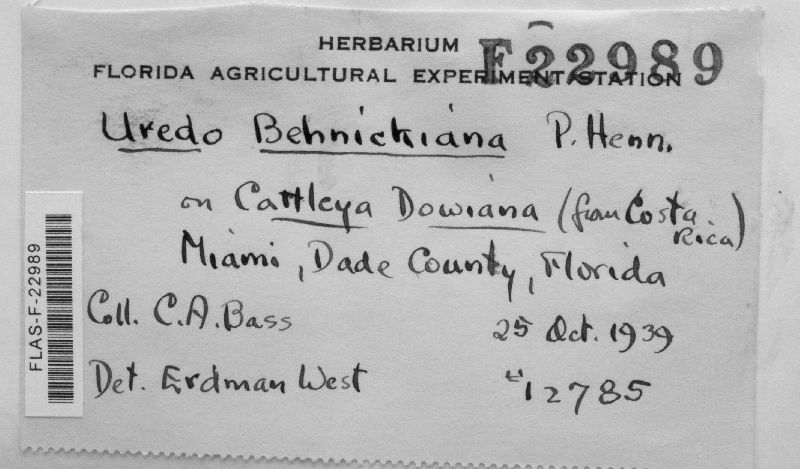 HERBARIUM F22989
FLORIDA AGRICULTURAL EXPERIMENT STATION
Uredo Behnickiana P. Henn.
on Cattleya Dowiana (from Costa Rica)
Miami, Dade County, Florida
Coll. C.A. Bass 25 Oct. 1939
Det. Erdman West #12785
FLAS-F-22989